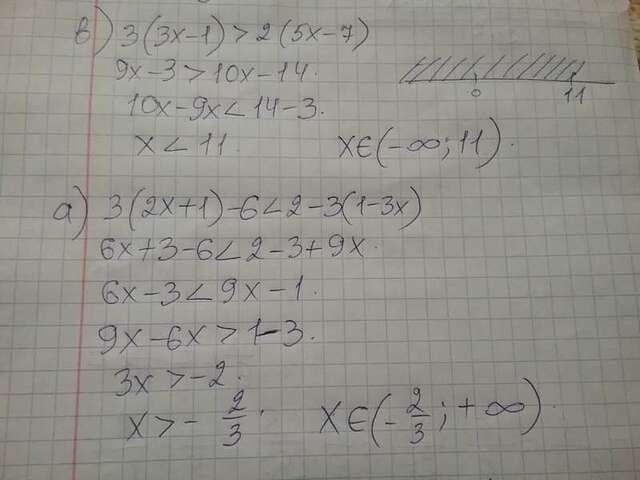 в) 3(3x-1)>2(5x-7)
9x-3>10x-14.
10x-9x<14-3.
x<11. x∈(-∞;11).
0 11
а) 3(2x+1)-6<2-3(1-3x)
6x+3-6<2-3+9x.
6x-3<9x-1.
9x-6x>1-3.
3x>-2.
x>-2/3. x∈(-2/3;+∞).